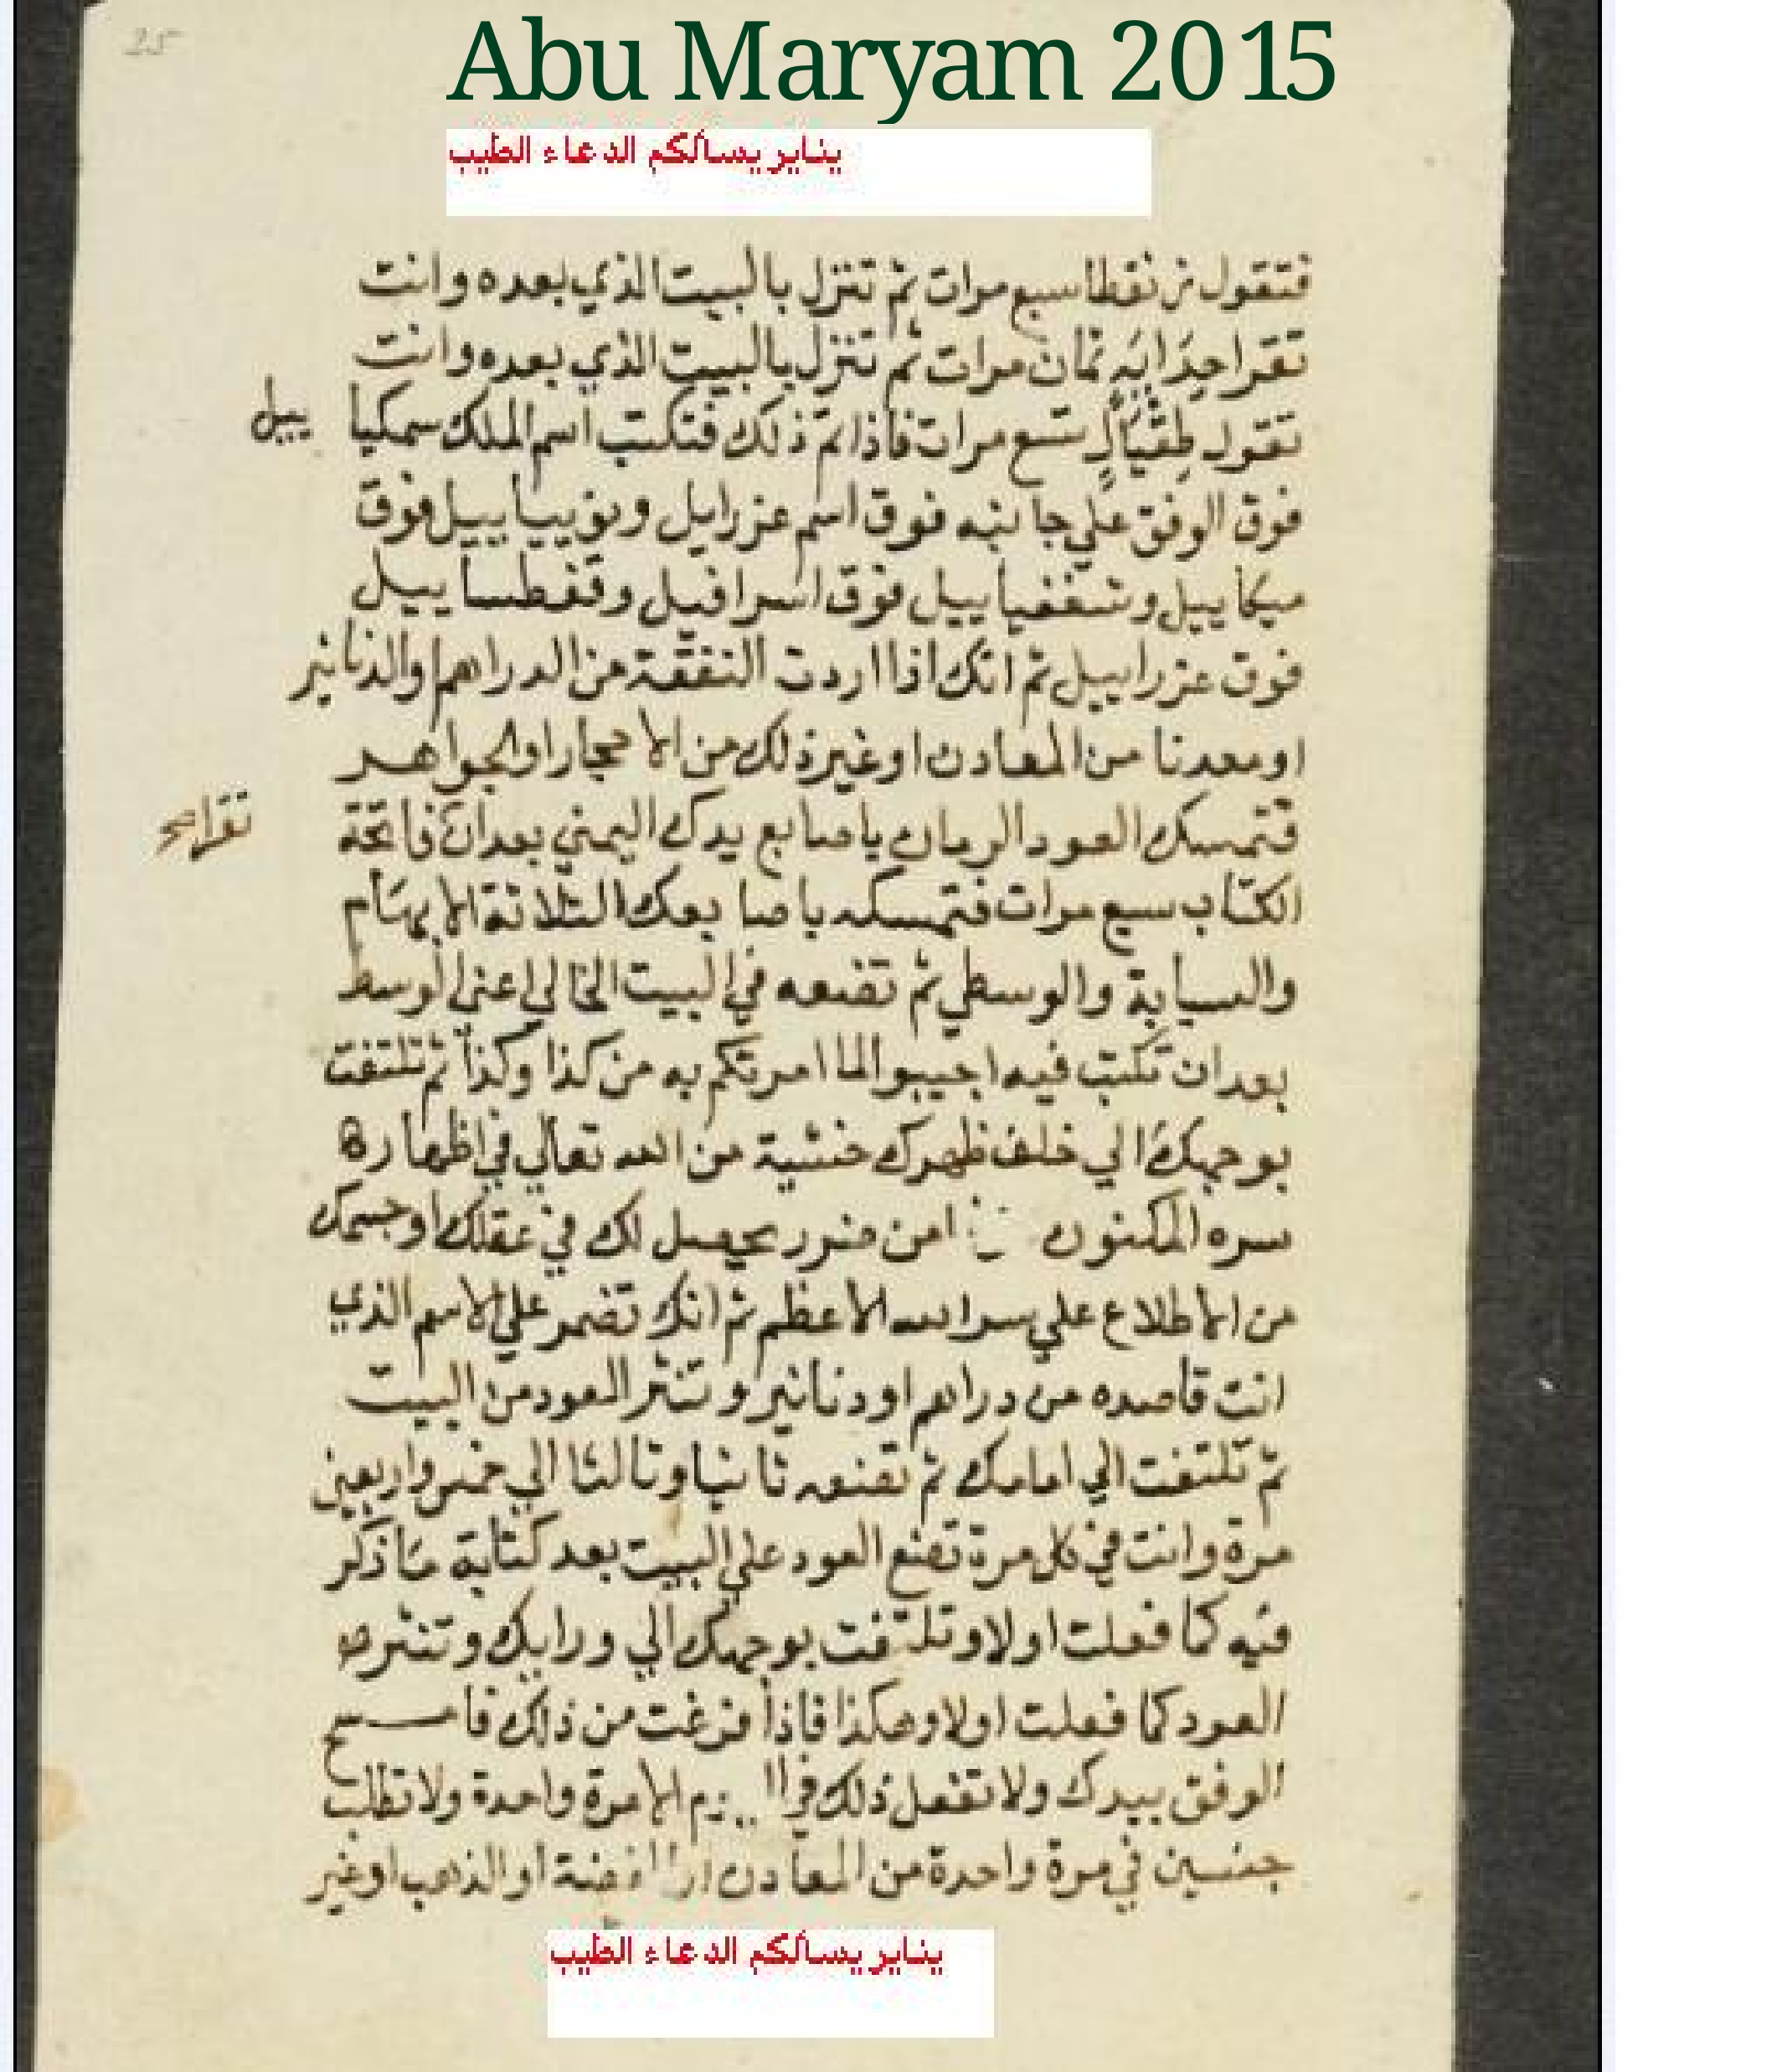 25
Abu Maryam 2015
يناير يسألكم الدعاء الطيب
فتقول سبع مرات ثم تنزل بالبيت الذي بعده وانت
تقرا ثمان مرات ثم تنزل بالبيت الذي بعده وانت
تقول تسع مرات فاذا تم ذلك فتكتب اسم الملك سمكيا ييل
فوق الوفق علي جانبه فوق اسم عزرايل فوق
ميكاييل فوق اسرافيل
فوق عزراييل ثم انك اذا اردت النفقة من الدراهم والدنانير
او معدنا من المعادن او غير ذلك من الاحجار او الجواهر
فتمسك العود الرمان باصابع يدك اليمني بعد ان تقرا فاتحة
الكتاب سبع مرات فتمسكه باصابعك الثلاثة الابهام
والسبابة والوسطي ثم تضعه في البيت الخالي اعني الوسط
بعد ان تكتب فيه اجيبوا لما امرتكم به من كذا وكذا ثم تلتفت
بوجهك الي خلف ظهرك خشية من الله تعالي في اظهاره
سره المكنون من ضرر يحصل لك في عقلك او جسمك
من الاطلاع علي سر الله الاعظم ثم انك تضمر علي الاسم الذي
انت قاصده من دراهم او دنانير وتنثر العود من البيت
ثم تلتفت الي امامك ثم تضعه ثانيا وثالثا الي خمس واربعين
مرة وانت في كل مرة تضع العود علي البيت بعد كتابة ما ذكر
فيه كما فعلت اولا وتلتفت بوجهك الي ورايك وتنثر
العود كما فعلت اولا وهكذا فاذا فرغت من ذلك فامسح
الوفق بيدك ولا تفعل ذلك الا مرة واحدة ولا تطلب
جنسين في مرة واحدة من المعادن فضة او الذهب او غير
يناير يسألكم الدعاء الطيب